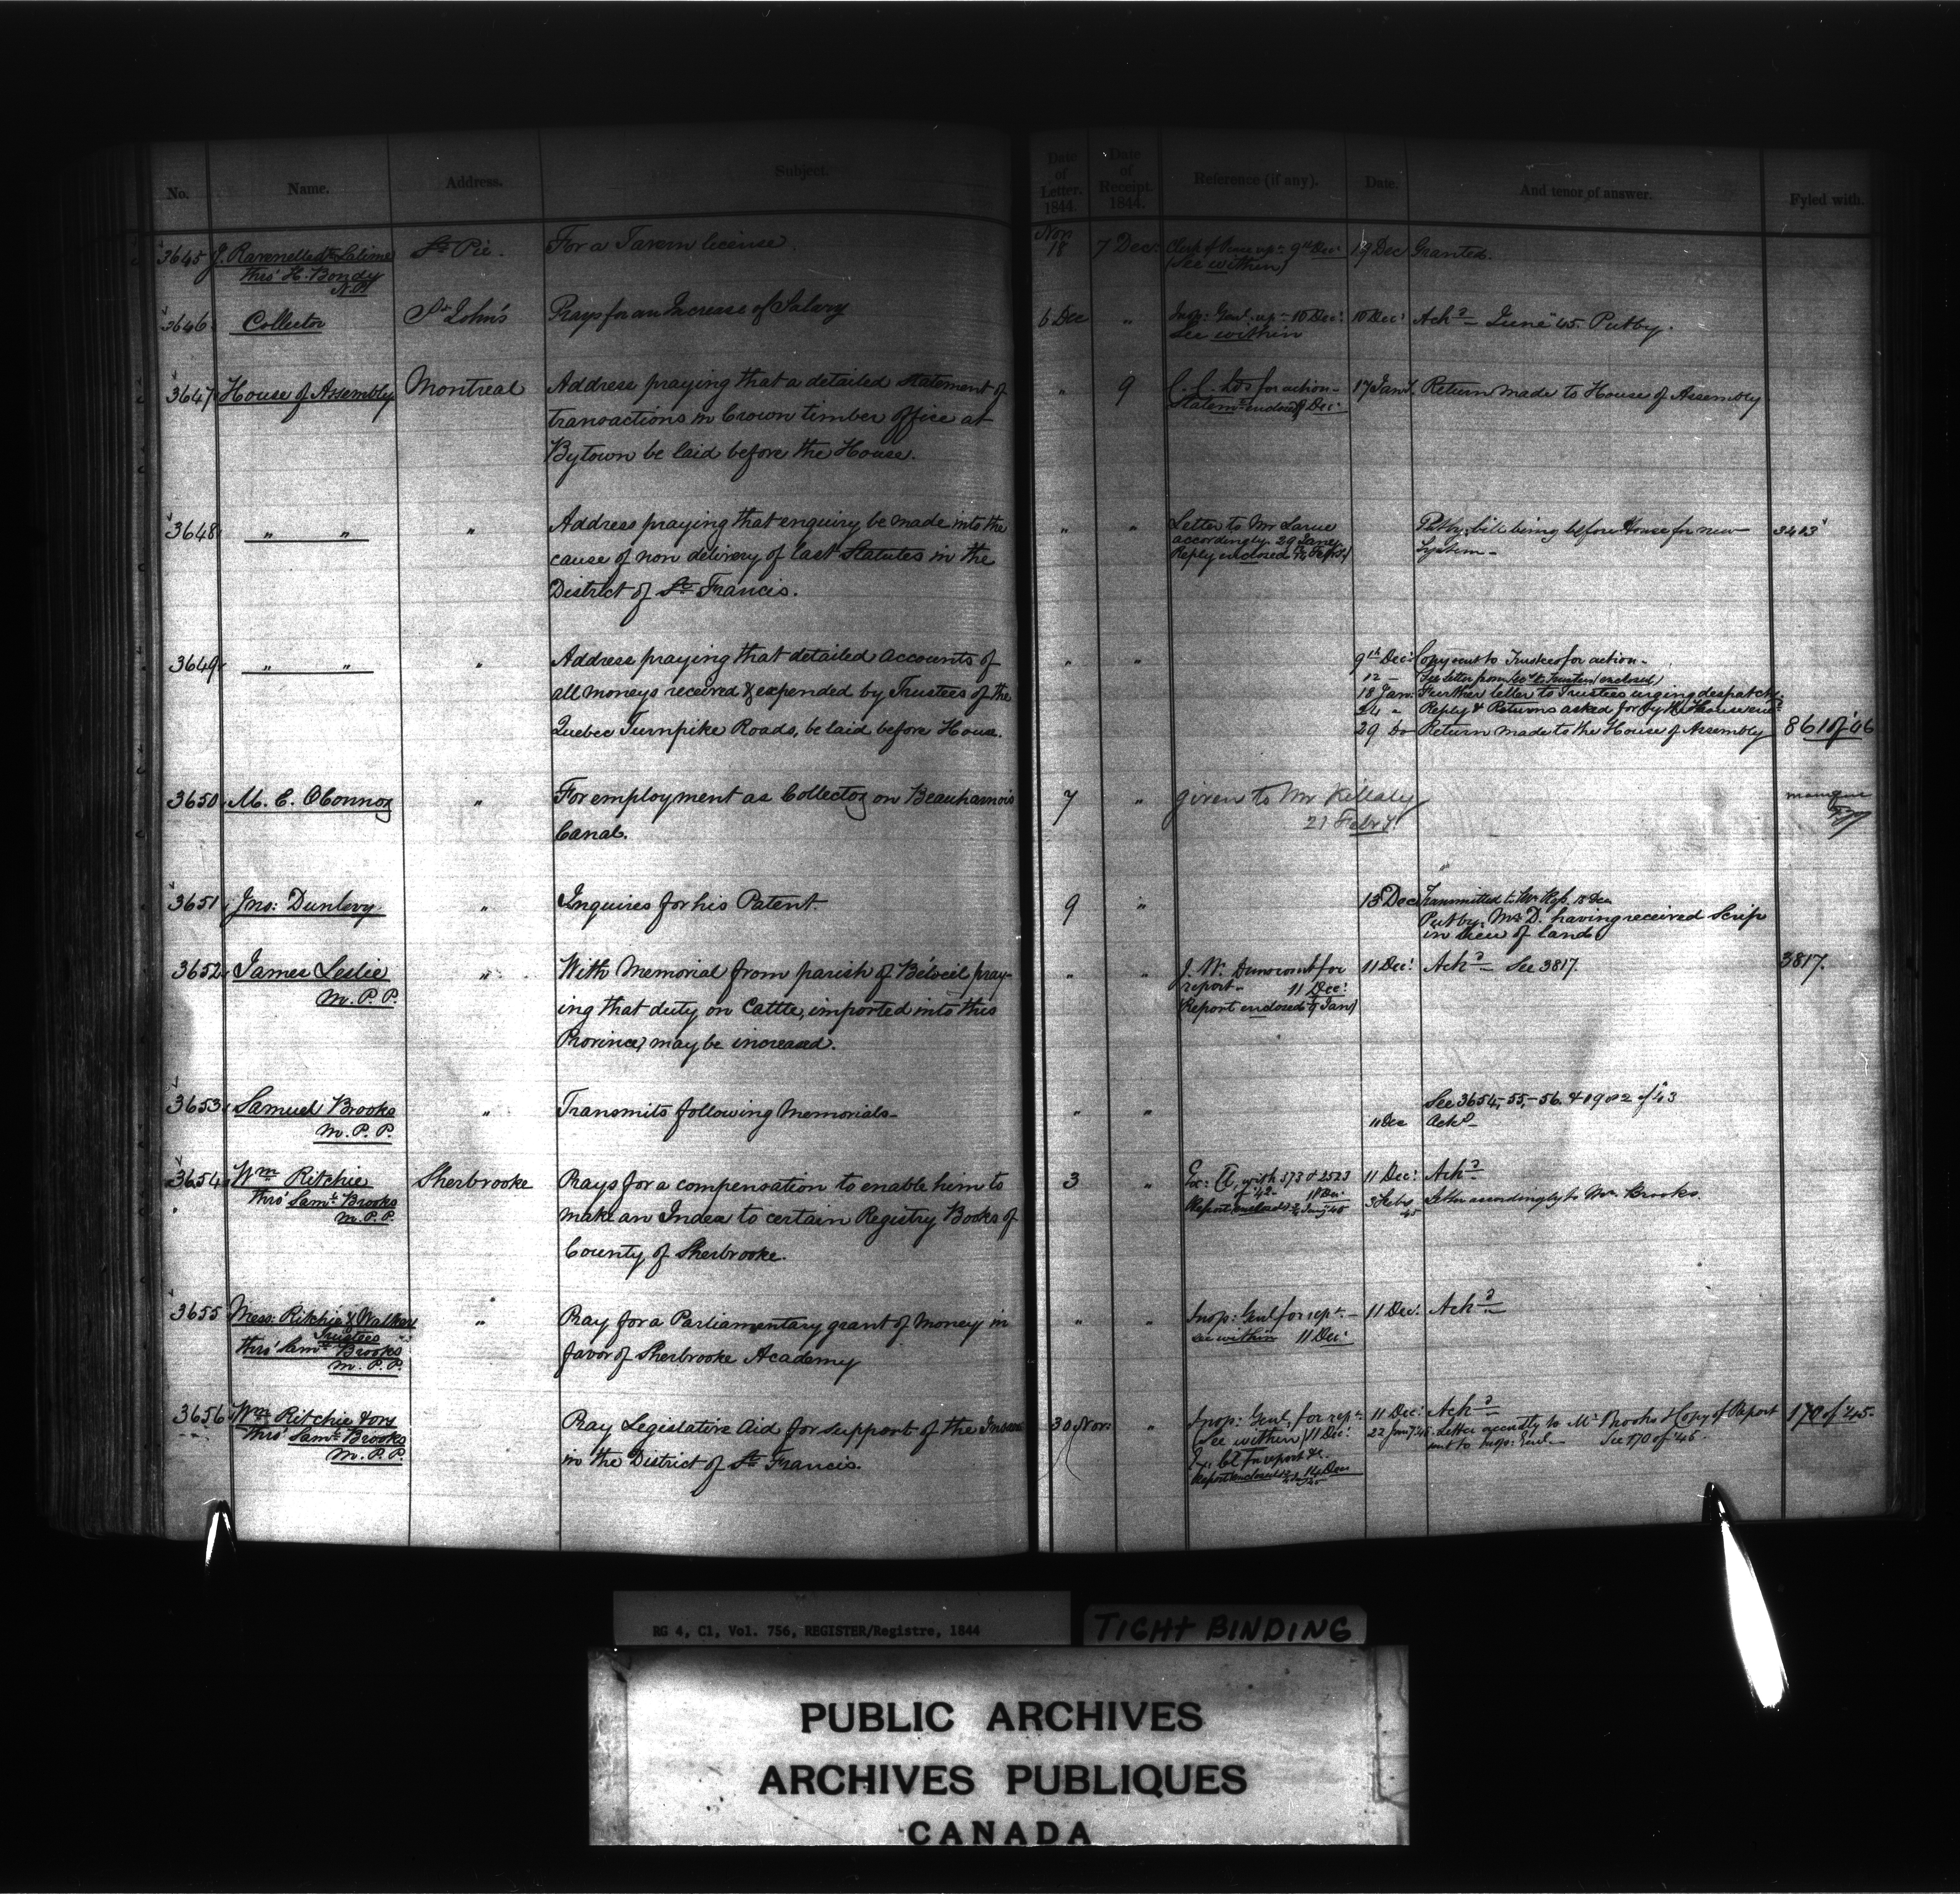 No. Name. Address. Subject. Date of Letter. 1844. Date of Receipt. 1844. Reference (if any). Date. And tenor of answer. Fyled with.
3645 St Pie. For a Tavern license. Nov 18 7 Dec: 9th Dec: 19 Dec Granted.
thro' H. Bondy (See within)
N.P.
3646 Collector St John's Prays for an Increase of Salary 6 Dec " Insp: Genl. 10 Dec: 10 Dec: Ackd - June 45. Putby.
See within
3647 House of Assembly Montreal Address praying that a detailed statement of " 9 C. C. Lds for action - 17 Jany. Return made to House of Assembly
transactions in Crown timber office at Statemt enclosed Dec:
Bytown be laid before the House.
3648 " " " Address praying that enquiry be made into the " " Letter to Mr Larue Putby, bill being before House for new 3403
cause of non delivery of last Statutes in the accordingly. 29 Jany System -
District of St Francis. Reply enclosed
3649 " " " Address praying that detailed accounts of " " 9th Dec: Copy sent to Trustees for action -
all moneys received & expended by Trustees of the 12 - See letter from Secy to Trustees (enclosed)
Quebec Turnpike Roads, be laid before House. 18 Jan: Further letter to Trustees urging despatch
24 " Reply & Returns asked for by H. House
29 Do Return made to the House of Assembly 861 of 46
3650 M. C. OConnor " For employment as Collector on Beauharnois 7 " given to Mr Killaly manque
Canal. 21 Febry
3651 Jno: Dunlevy " Inquires for his Patent. 9 " 13 Dec Transmitted to Mr
Putby. Mr D. having received Scrip
in lieu of land
3652 James Leslie " With Memorial from parish of Belœil pray- " " J. W. Dunscomb for 11 Dec: Ackd - See 3817. 3817.
M.P.P. ing that duty on Cattle, imported into this report - 11 Dec:
Province, may be increased. (Report enclosed Jan)
3653 Samuel Brooks " Transmits following Memorials - " " See 3654, -55, -56. & 1982 of 43
M.P.P. 11 Dec Ackd -
3654 Wm Ritchie Sherbrooke Prays for a compensation to enable him to 3 " Ex: Cl, with 573 & 2523 11 Dec: Ackd -
thro' Saml Brooks make an Index to certain Registry Books of of 42 - 11 Dec: 3 Feby 45 Letter accordingly to Mr. Brooks.
M.P.P. County of Sherbrooke. Report enclosed
3655 Messrs Ritchie & Walker " Pray for a Parliamentary grant of money in " " Insp: Genl for rept - 11 Dec: Ackd -
Trustees favor of Sherbrooke Academy see within 11 Dec:
thro' Saml Brooks
M.P.P.
3656 Wm Ritchie & ors Pray Legislative aid for support of the Insane 30 Nov: " Insp: Genl, for rept. 11 Dec: Ackd -
thro' Saml Brooks in the District of St Francis. (See within) 11 Dec: 22 Jany 45 Letter accordly to Mr Brooks & copy of Report 170 of 45.
M.P.P. Ex. Cl for report &c. sent to Insp: Genl - See 170 of 45.
Report enclosed
RG 4, C1, Vol. 756, REGISTER/Registre, 1844
TIGHT BINDING
PUBLIC ARCHIVES
ARCHIVES PUBLIQUES
CANADA